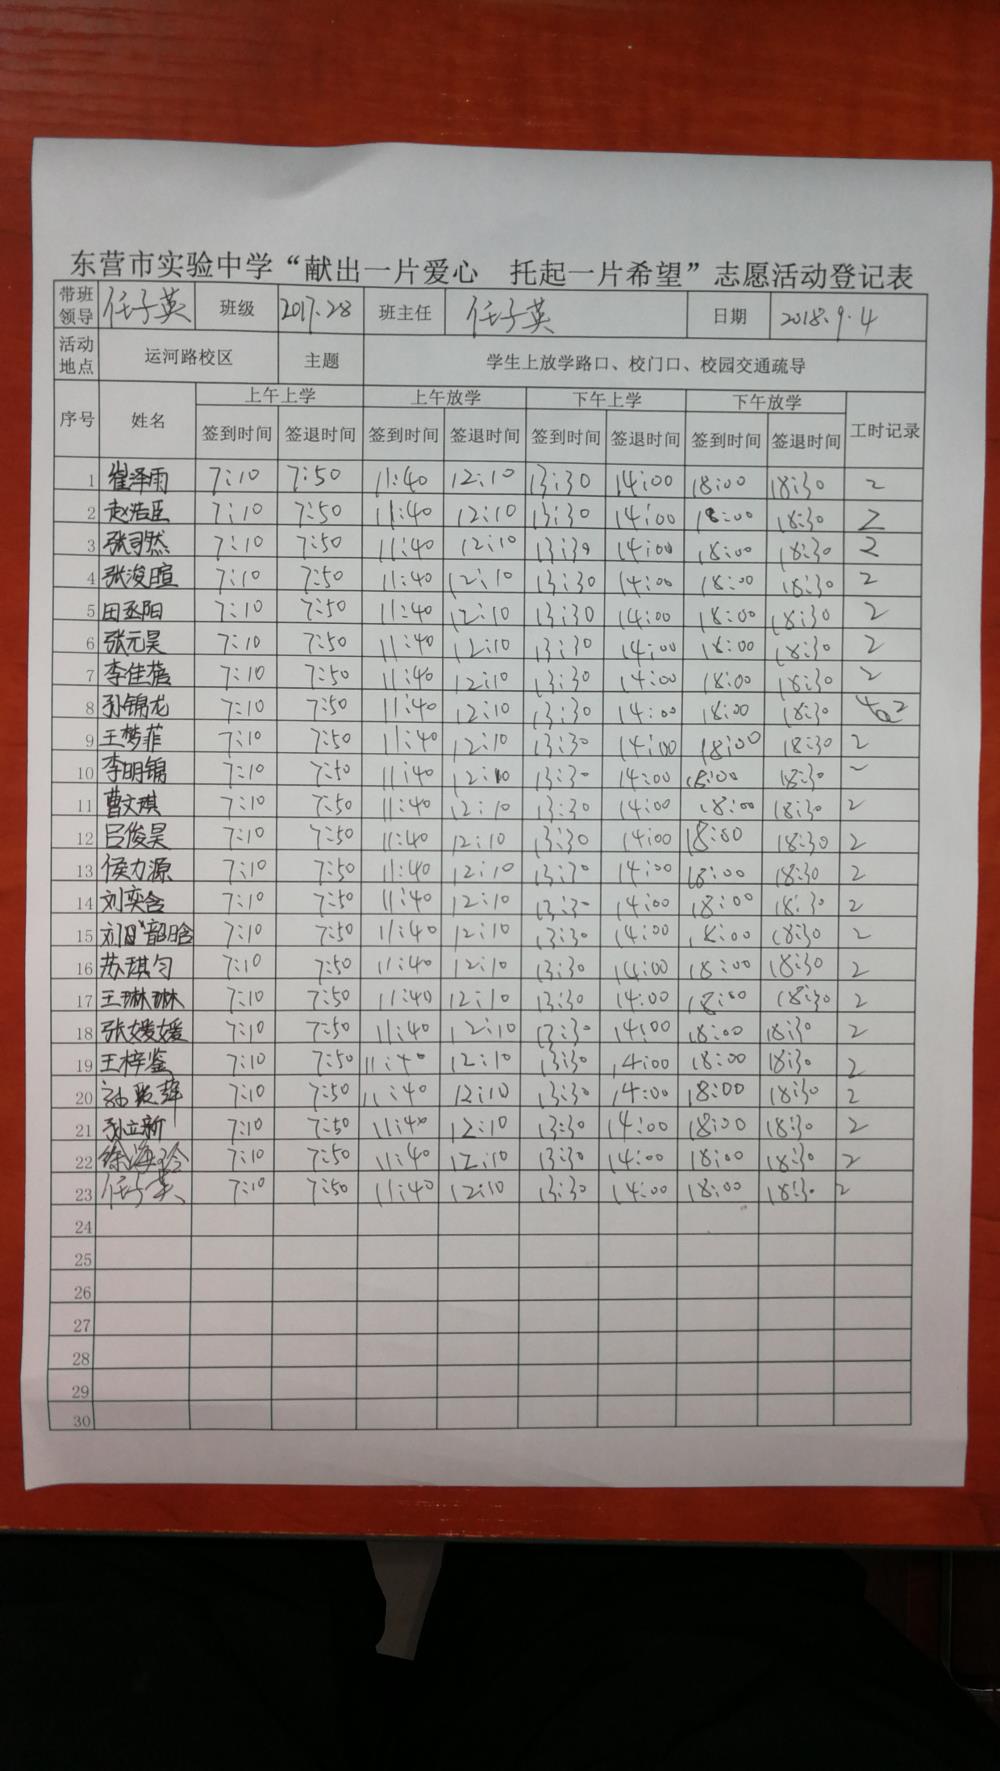 东营市实验中学“献出一片爱心 托起一片希望”志愿活动登记表
带班领导 任子英 班级 2017.28 班主任 任子英 日期 2018.9.4
活动地点 运河路校区 主题 学生上放学路口、校门口、校园交通疏导
序号 姓名 上午上学 上午放学 下午上学 下午放学 工时记录
签到时间 签退时间 签到时间 签退时间 签到时间 签退时间 签到时间 签退时间
1 崔泽雨 7:10 7:50 11:40 12:10 13:30 14:00 18:00 18:30 2
2 赵浩臣 7:10 7:50 11:40 12:10 13:30 14:00 18:00 18:30 2
3 张司然 7:10 7:50 11:40 12:10 13:30 14:00 18:00 18:30 2
4 张浚暄 7:10 7:50 11:40 12:10 13:30 14:00 18:00 18:30 2
5 田丞阳 7:10 7:50 11:40 12:10 13:30 14:00 18:00 18:30 2
6 张元昊 7:10 7:50 11:40 12:10 13:30 14:00 18:00 18:30 2
7 李佳蓓 7:10 7:50 11:40 12:10 13:30 14:00 18:00 18:30 2
8 孙锦龙 7:10 7:50 11:40 12:10 13:30 14:00 18:00 18:30 2
9 王梦菲 7:10 7:50 11:40 12:10 13:30 14:00 18:00 18:30 2
10 李明锦 7:10 7:50 11:40 12:10 13:30 14:00 18:00 18:30
11 曹文琪 7:10 7:50 11:40 12:10 13:30 14:00 18:00 18:30 2
12 吕俊昊 7:10 7:50 11:40 12:10 13:30 14:00 18:00 18:30 2
13 侯力源 7:10 7:50 11:40 12:10 13:30 14:00 18:00 18:30 2
14 刘奕含 7:10 7:50 11:40 12:10 13:30 14:00 18:00 18:30 2
15 刘韶晗 7:10 7:50 11:40 12:10 13:30 14:00 18:00 18:30 2
16 苏琪匀 7:10 7:50 11:40 12:10 13:30 14:00 18:00 18:30 2
17 王琳琳 7:10 7:50 11:40 12:10 13:30 14:00 18:00 18:30 2
18 张媛媛 7:10 7:50 11:40 12:10 13:30 14:00 18:00 18:30 2
19 王梓鉴 7:10 7:50 11:40 12:10 13:30 14:00 18:00 18:30 2
20 7:10 7:50 11:40 12:10 13:30 14:00 18:00 18:30 2
21 孙立新 7:10 7:50 11:40 12:10 13:30 14:00 18:00 18:30 2
22 徐海玲 7:10 7:50 11:40 12:10 13:30 14:00 18:00 18:30 2
23 任子英 7:10 7:50 11:40 12:10 13:30 14:00 18:00 18:30 2
24
25
26
27
28
29
30